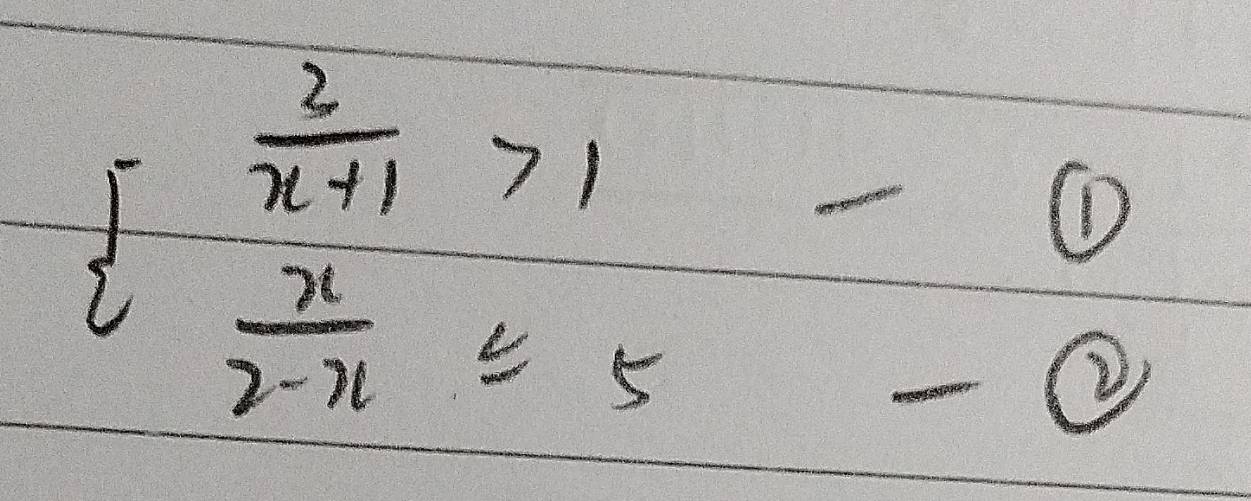 { 2/(x+1) > 1 - ①
x/(2-x) ≤ 5 - ②